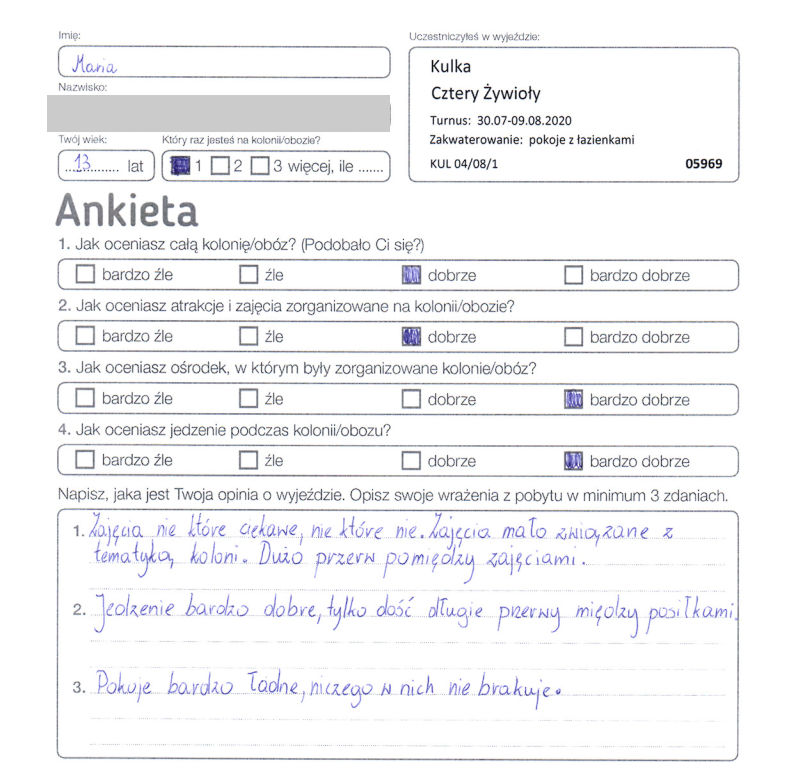 Imię:
Maria
Nazwisko:
Twój wiek:
13 lat
Który raz jesteś na kolonii/obozie?
1 2 3 więcej, ile .......
Uczestniczyłeś w wyjeździe:
Kulka
Cztery Żywioły
Turnus: 30.07-09.08.2020
Zakwaterowanie: pokoje z łazienkami
KUL 04/08/1 05969
Ankieta
1. Jak oceniasz całą kolonię/obóz? (Podobało Ci się?)
bardzo źle źle dobrze bardzo dobrze
2. Jak oceniasz atrakcje i zajęcia zorganizowane na kolonii/obozie?
bardzo źle źle dobrze bardzo dobrze
3. Jak oceniasz ośrodek, w którym były zorganizowane kolonie/obóz?
bardzo źle źle dobrze bardzo dobrze
4. Jak oceniasz jedzenie podczas kolonii/obozu?
bardzo źle źle dobrze bardzo dobrze
Napisz, jaka jest Twoja opinia o wyjeździe. Opisz swoje wrażenia z pobytu w minimum 3 zdaniach.
1. Zajęcia nie które ciekawe, nie które nie. Zajęcia mało związane z
tematyką koloni. Dużo przerw pomiędzy zajęciami.
2. Jedzenie bardzo dobre, tylko dość długie przerwy między posiłkami.
3. Pokoje bardzo ładne, niczego w nich nie brakuje.